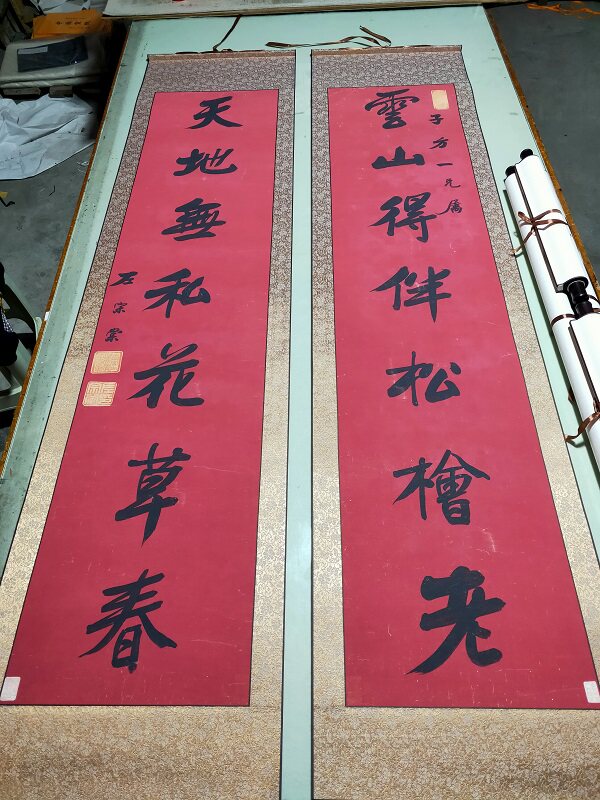 子方一兄属
雲山得伴松檜老
天地無私花草春
左宗棠